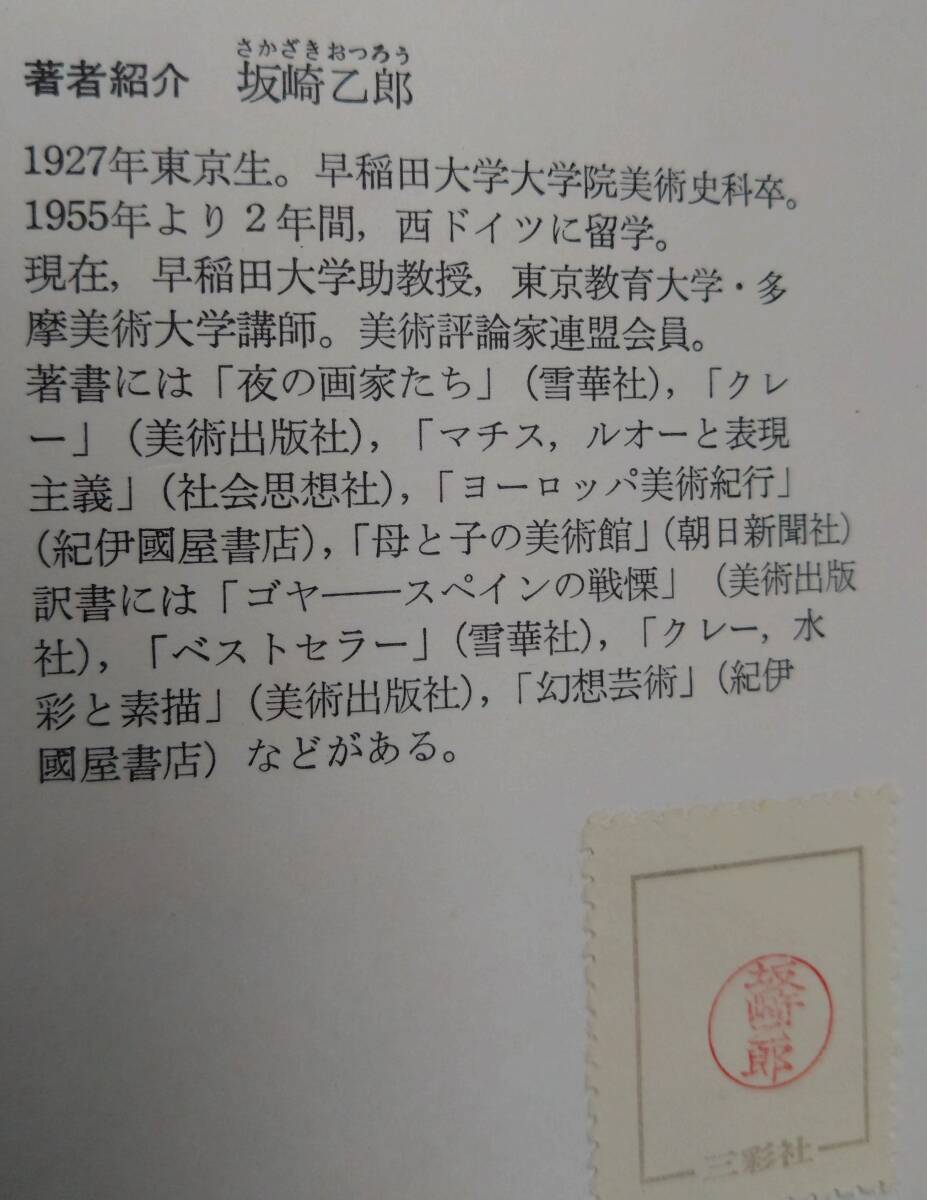 さかざきおつろう
著者紹介 坂崎乙郎
1927年東京生。早稲田大学大学院美術史科卒。
1955年より2年間，西ドイツに留学。
現在，早稲田大学助教授，東京教育大学・多
摩美術大学講師。美術評論家連盟会員。
著書には「夜の画家たち」（雪華社），「クレ
ー」（美術出版社），「マチス，ルオーと表現
主義」（社会思想社），「ヨーロッパ美術紀行」
（紀伊國屋書店），「母と子の美術館」（朝日新聞社）
訳書には「ゴヤ――スペインの戦慄」（美術出版
社），「ベストセラー」（雪華社），「クレー，水
彩と素描」（美術出版社），「幻想芸術」（紀伊
國屋書店）などがある。
三彩社